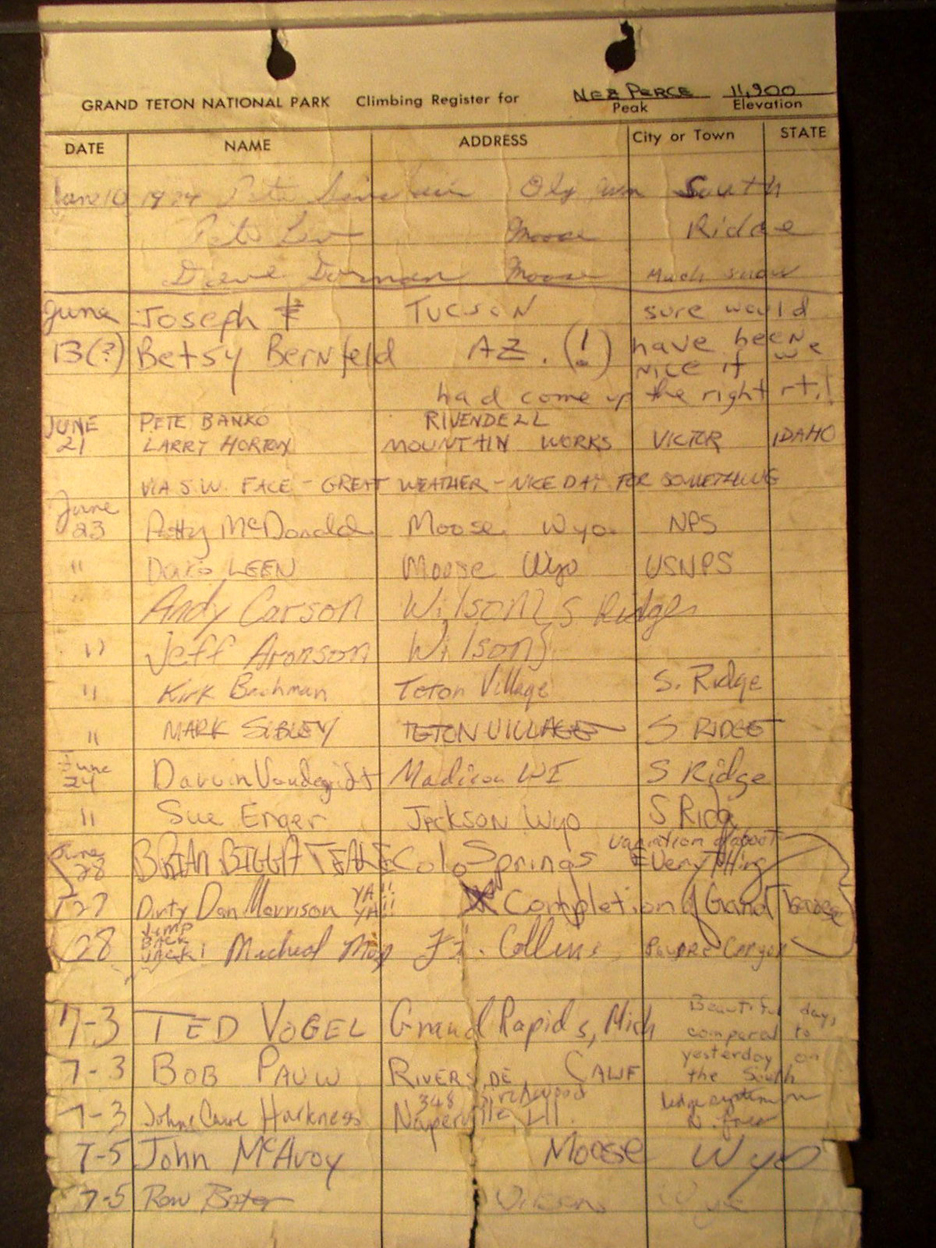 GRAND TETON NATIONAL PARK Climbing Register for NEZ PERCE 11,900
Peak Elevation
DATE NAME ADDRESS City or Town STATE
June 10 Pete South
Pete Moose Ridge
Dave Dornan Moose Much snow
June Joseph & TUCSON sure would
13(?) Betsy Bernfeld AZ. (!) have been
NICE if we
had come up the right rt.!
JUNE PETE BANKO RIVENDELL
21 LARRY HORTON MOUNTAIN WORKS VICTOR IDAHO
VIA S.W. FACE - GREAT WEATHER - NICE DAY FOR SOMETHING
June
23 Patty McDonald Moose, Wyo. NPS
" LEEN Moose Wyo USNPS
" Andy Carson Wilson S Ridge
" Jeff Aronson Wilson
" Kirk Bachman Teton Village S. Ridge
" MARK SIBLEY TETON VILLAGE S RIDGE
June
24 Darvin Vandegrift Madison WI S Ridge
" Sue Enger Jackson Wyo S Ridg
variation of about
June 28 BRIAN Colo Springs Everything
27 Dirty Dan Morrison YA!! YA!! Completion of Grand Traverse
28 JUMP BACK JACK! Micheal Ft. Collins
7-3 TED VOGEL Grand Rapids, Mich Beautiful day,
compared to
7-3 BOB PAUW RIVERSIDE CALIF yesterday on
the South
7-3 Harkness 348 Naperville, Ill. ledge system on
N. face
7-5 John McAvoy Moose Wyo
7-5 Ron